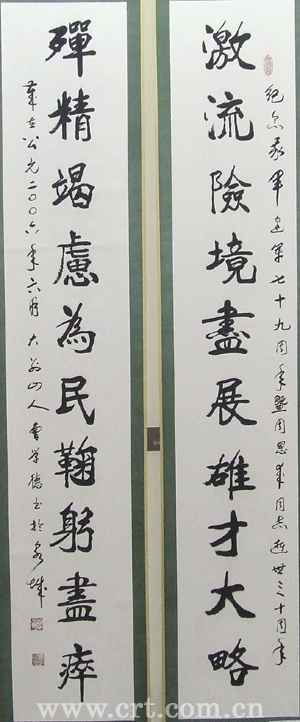 激流險境盡展雄才大略
紀念我軍建軍七十九周年暨周恩來同志逝世三十周年
殫精竭慮為民鞠躬盡瘁
公元二〇〇六年六月大翁山人曹学德书於泉城
www.crt.com.cn